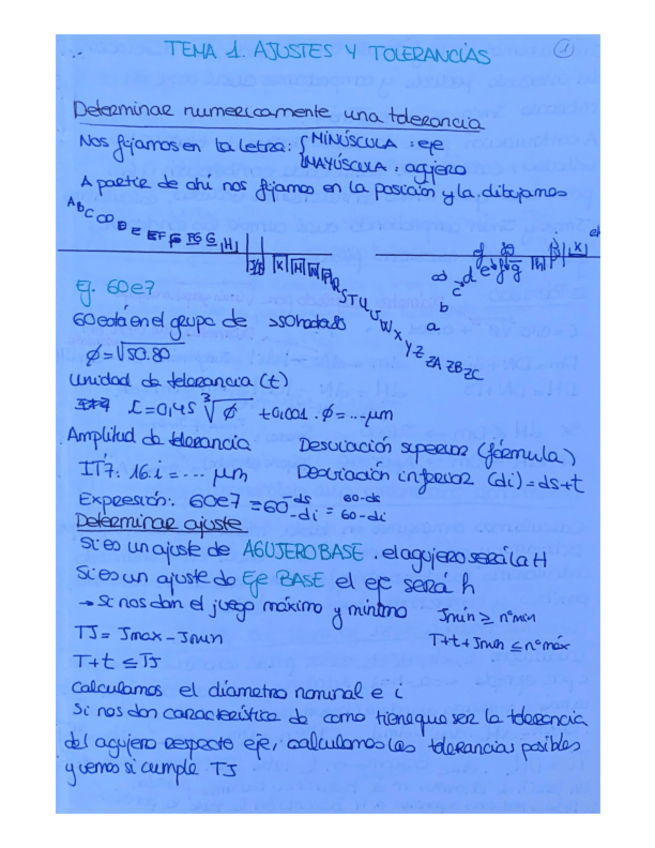 TEMA 1. AJUSTES Y TOLERANCIAS
1
Determinar numericamente una tolerancia
Nos fijamos en la letra: { MINÚSCULA : eje
MAYÚSCULA : agujero
A partir de ahí nos fijamos en la posición y la dibujamos
A B C CD D E EF F FG G H
K M N P R S T U V W X Y Z ZA ZB ZC
a b c cd d e ef f fg g h k
Ej. 60e7
60 está en el grupo de >50 hasta 80
Ø = √50.80
Unidad de tolerancia (t)
i = 0,45 ∛Ø + 0,001 . Ø = ... μm
Amplitud de tolerancia
Desviación superior (fórmula)
IT7: 16.i = ... μm
Desviación inferior (di) = ds+t
Expresión: 60e7 = 60 -ds -di = 60-ds 60-di
Determinar ajuste
Si es un ajuste de AGUJERO BASE . el agujero será la H
Si es un ajuste de Eje BASE el eje será h
→ Si nos dan el juego máximo y mínimo
Jmín ≥ nº min
TJ = Jmax - Jmin
T+t+Jmin ≤ nº máx
T+t ≤ TJ
Calculamos el diametro nominal e i
Si nos dan característica de como tiene que ser la tolerancia
del agujero respecto eje, calculamos las tolerancias posibles
y vemos si cumple TJ